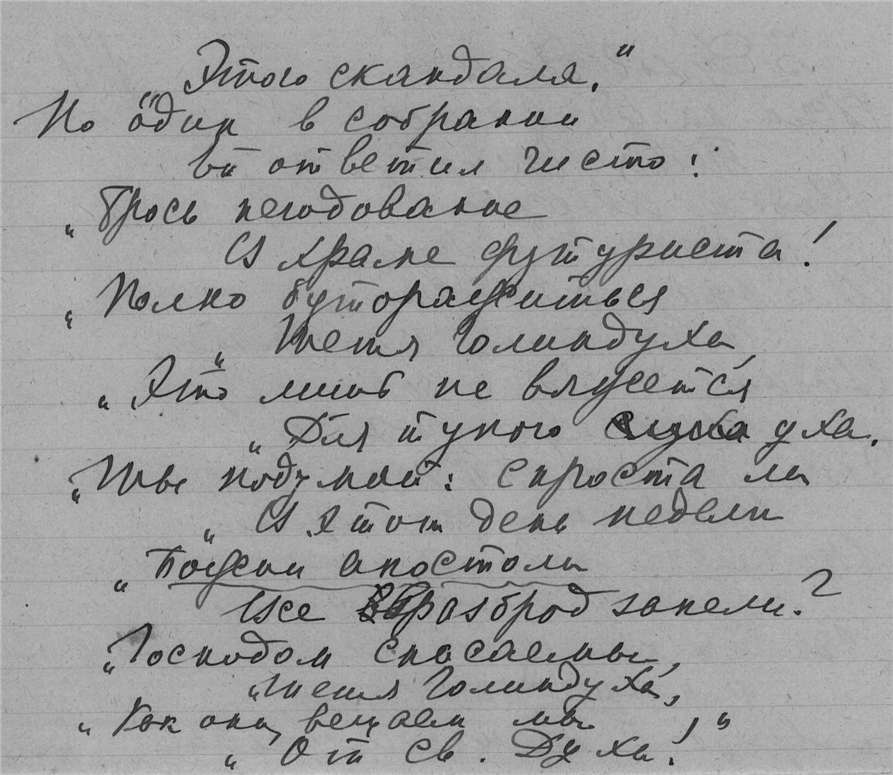 Этого скандала."
Но один в собрании
Ей ответил чисто:
"Брось негодование
В храме футуриста!
"Полно будоражиться
"Тетя Голиндуха,
"Это лишь не вяжется
"Для тугого уха.
"Ты подумай: спроста ли
"В этот день недели
"Божьи апостолы
Все вразброд запели?
"Господом спасаемы,
"Тетя Голиндуха,
"Как они, вещаем мы
"От св. Духа!"